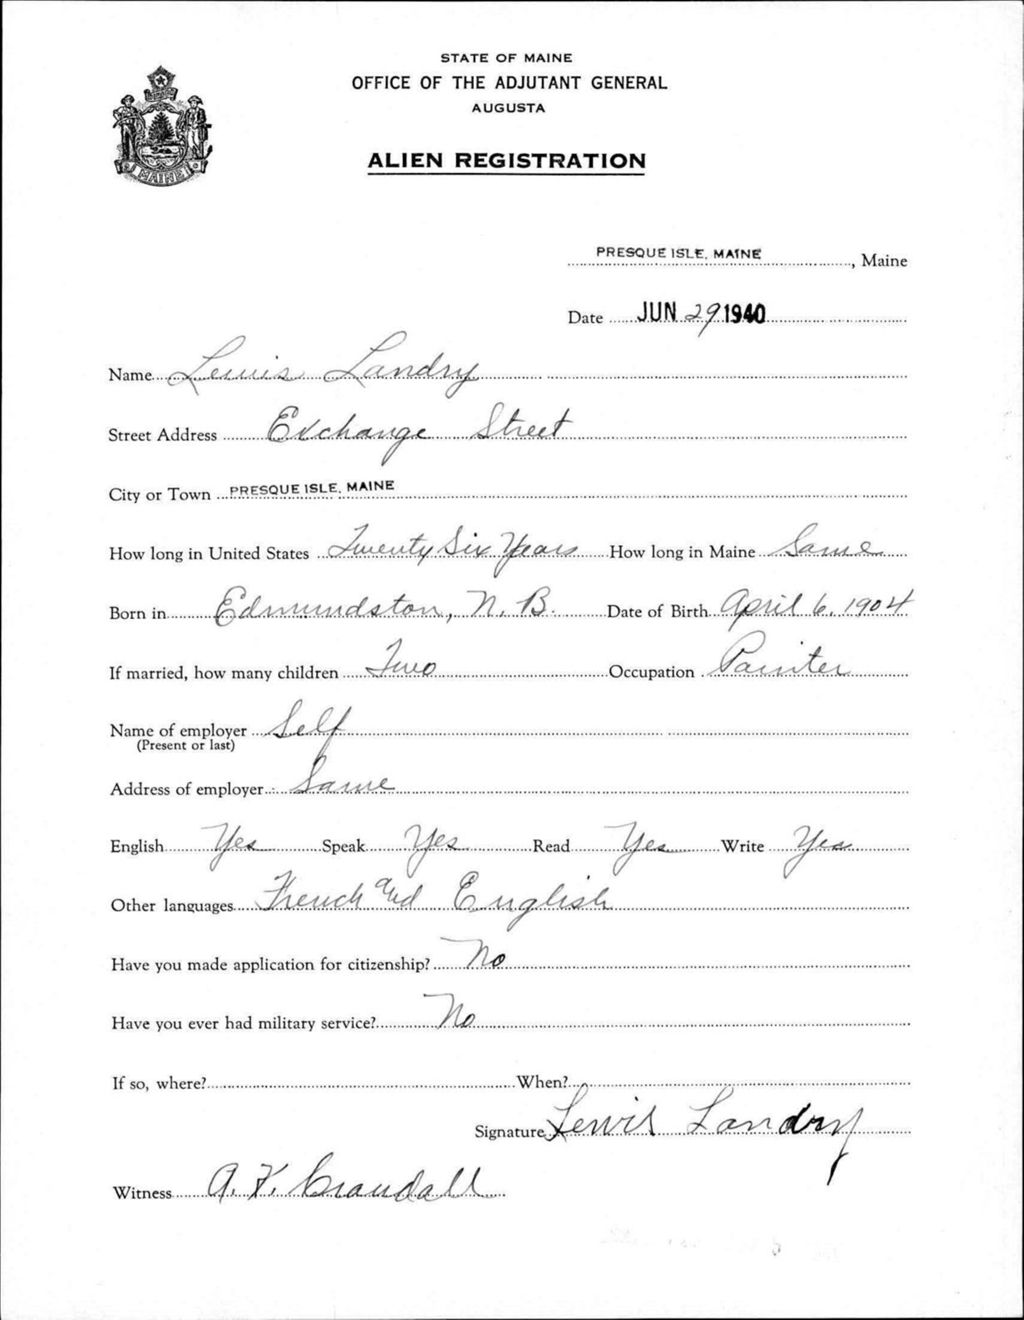 STATE OF MAINE
OFFICE OF THE ADJUTANT GENERAL
AUGUSTA
MAINE
ALIEN REGISTRATION
PRESQUE ISLE, MAINE, Maine
Date JUN 29 1940
Name Lewis Landry
Street Address Exchange Street
City or Town PRESQUE ISLE, MAINE
How long in United States Twenty Six Years How long in Maine Same
Born in Edmundston, N. B. Date of Birth April 6, 1904
If married, how many children Two Occupation Painter
Name of employer Self
(Present or last)
Address of employer Same
English Yes Speak Yes Read Yes Write Yes
Other languages French and English
Have you made application for citizenship? No
Have you ever had military service? No
If so, where? When?
Signature Lewis Landry
Witness A. F. Crandall